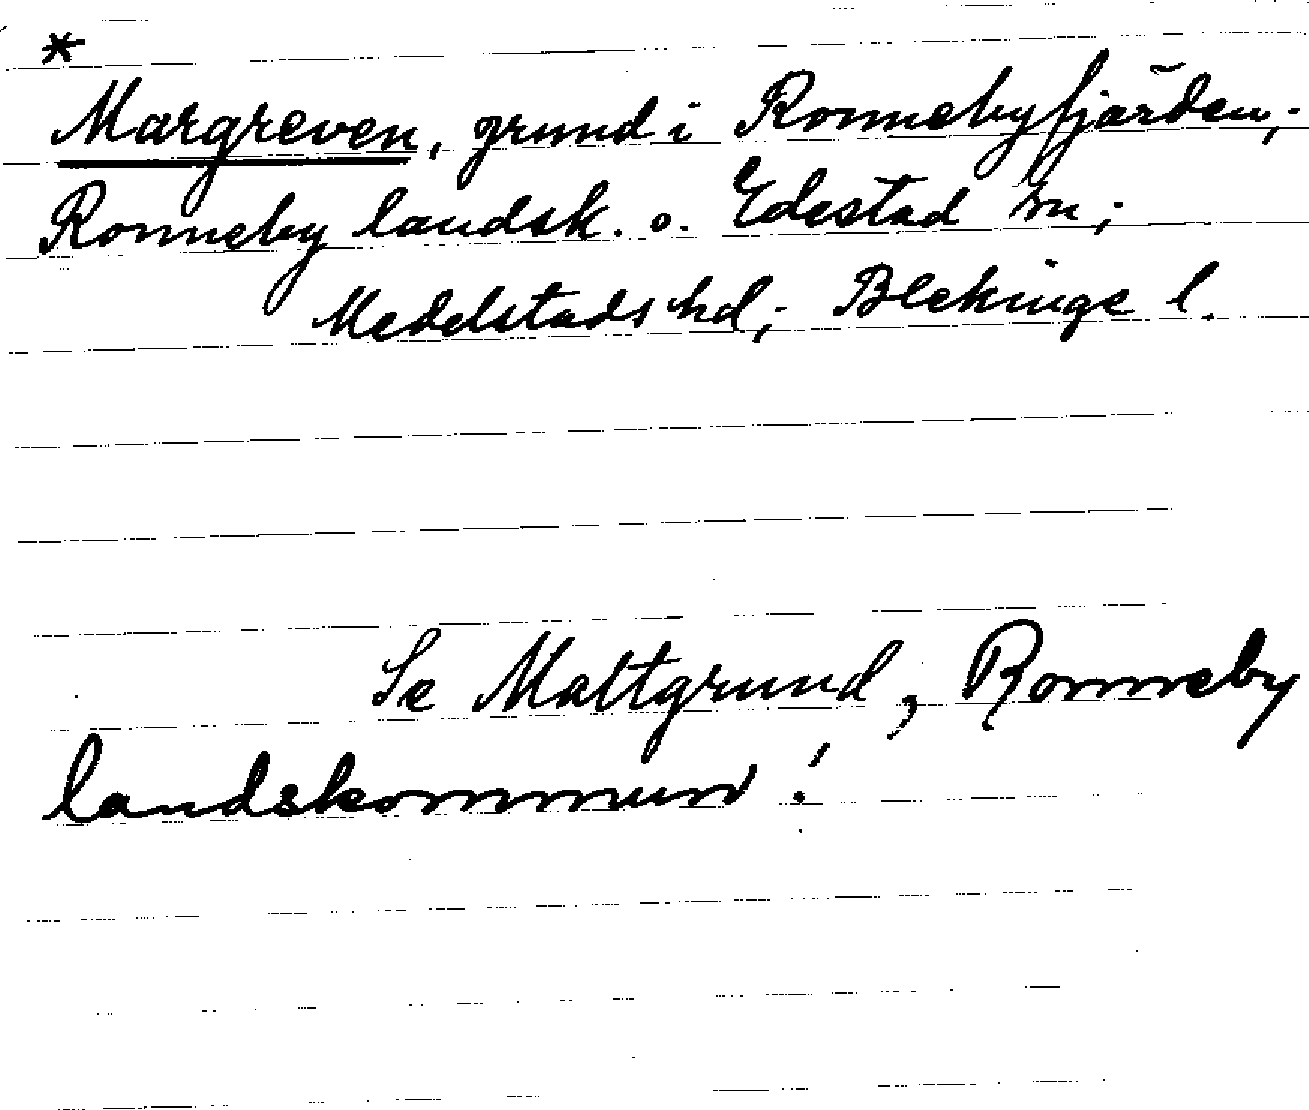 *
Margreven, grund i Ronnebyfjärden,
Ronneby landsk. o. Edestad sn;
Medelstads hd; Blekinge l.
Se Maltgrund, Ronneby
landskommun!